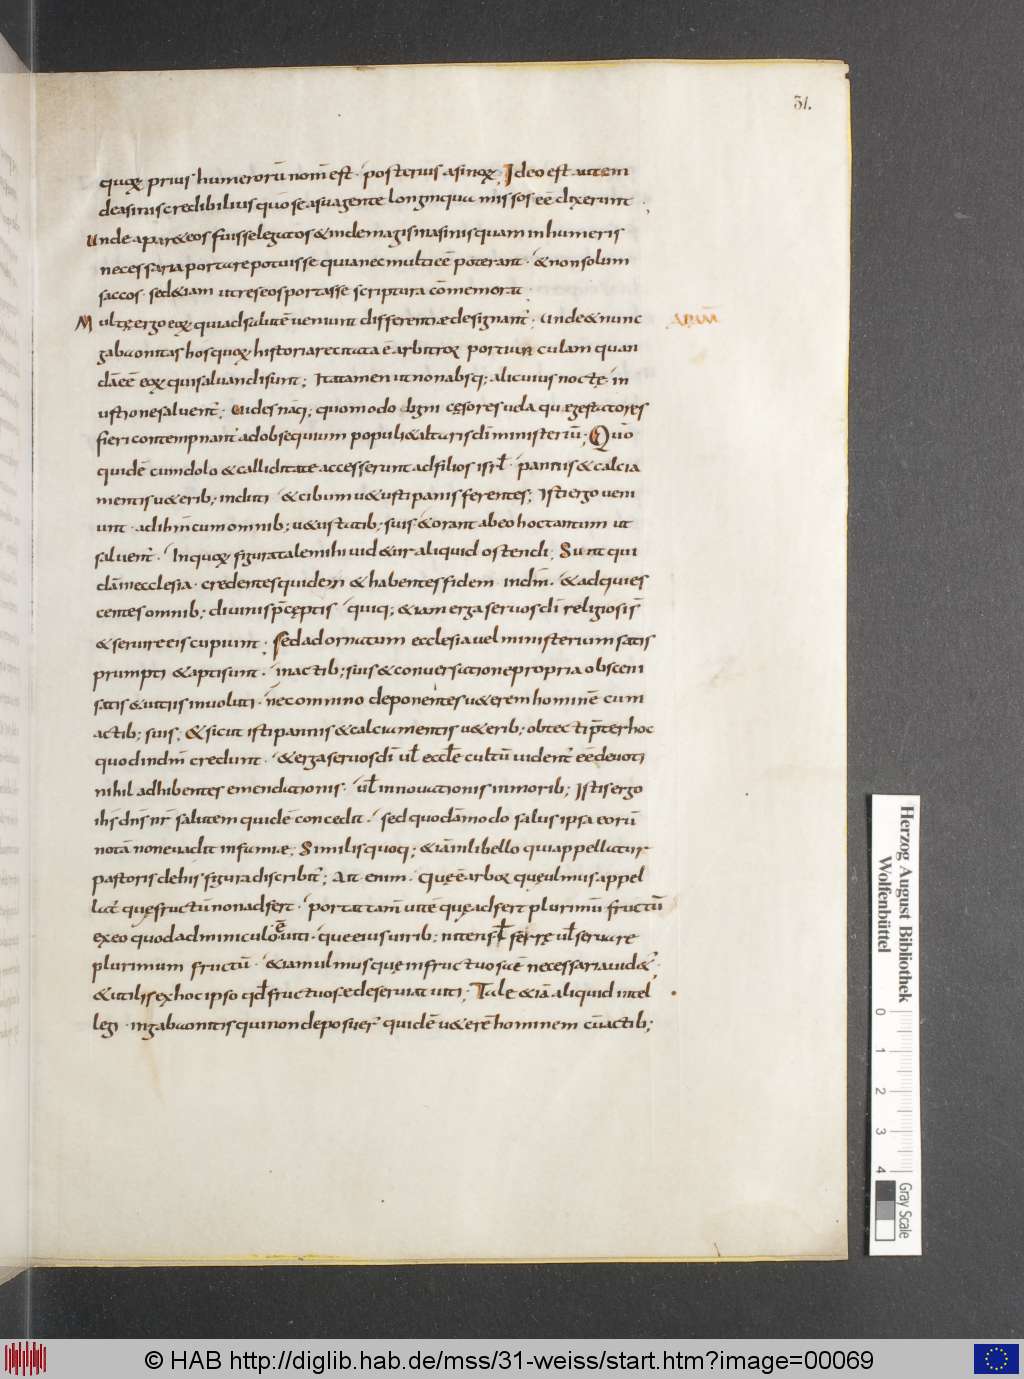 31.
quoꝝ prius humerorū nom̄ est · posterius asinoꝝ. Ideo est autem
de asinis credibilius quo se asua gente longinqua missos eē dixerunt.
Unde aparet eos fuisse legatos & inde magis in asinis quam in humeris
necessaria portare potuisse quia nec multi eē poterant · & non solum
saccos · sed &iam utres eos portasse scriptura cōmemorat.
Multę ergo eoꝝ qui ad salutē veniunt differentiæ designant᷑. Unde & nunc
gabaonitas hos quoꝝ historia recitata ē arbitror portiunculam quan
dā eē eoꝝ qui salvandi sunt; Ita tamen ut non absq; alicuius notę in
ustione salvent᷑. Vides nāq; quomodo
fieri contempnant᷑ ad obsequium populi & altaris dī ministeriū; Quō
quidē cum dolo & calliditate accesserunt ad filios isrł · pannis & calcia
mentis u&erib; induti & cibum u&usti panis ferentes; Isti ergo veni
unt · ad ih̄m cum omnib; u&ustatib; suis & orant ab eo hoc tantum ut
salvent᷑. In quoꝝ figura tale mihi vid&ur aliquid ostendi; Sunt qui
dā in ecclesia · credentes quidem & habentes fidem in dm̄ · & adquies
centes omnib; divinis p̄cęptis quiq; &iam erga servos dī religiosi s̄
& servire eis cupiunt · sed ad ornatum ecclesia vel ministerium satis
prumpti & apti sunt · in actib; suis & conversatione propria obsceni
tatis & vitiis involuti · nec omnino deponentes u&erem hominē cum
actib; suis; & sicut isti pannis & calciamentis u&erib; obtecti p̄ter hoc
quod in dm̄ credunt · & erga servos dī uł ecclę cultū videnť eē devoti
nihil adhibentes emendationis · uł innovationis in morib; Istis ergo
ihs̄ dn̄s nr̄ salutem quidē concedit · sed quodāmodo salus ipsa eorū
notā non evadit infamiæ; Similis quoq; &iā in libello qui appellatur
pastoris de his figura discribit᷑; Ait enim · Quę ē arbor quę ulmus appel
lat᷑ quę fructū non adfert · portat tam̄ vitē quę adfert plurimū fructū
ex eo quod adminiculo ē viti · que eius virib; nitens fert uł servare
plurimum fructū · &iam ulmus quę infructuosa ē necessaria vid&᷑
& utilis ex hoc ipso qđ fructuose deserviat viti; Tale &iā aliquid intel
legi · in gabaonitis qui non deposuer̄ quidē u&erē hominem cū actib;
Herzog August Bibliothek
Wolfenbüttel
0 1 2 3 4
Gray Scale
© HAB http://diglib.hab.de/mss/31-weiss/start.htm?image=00069